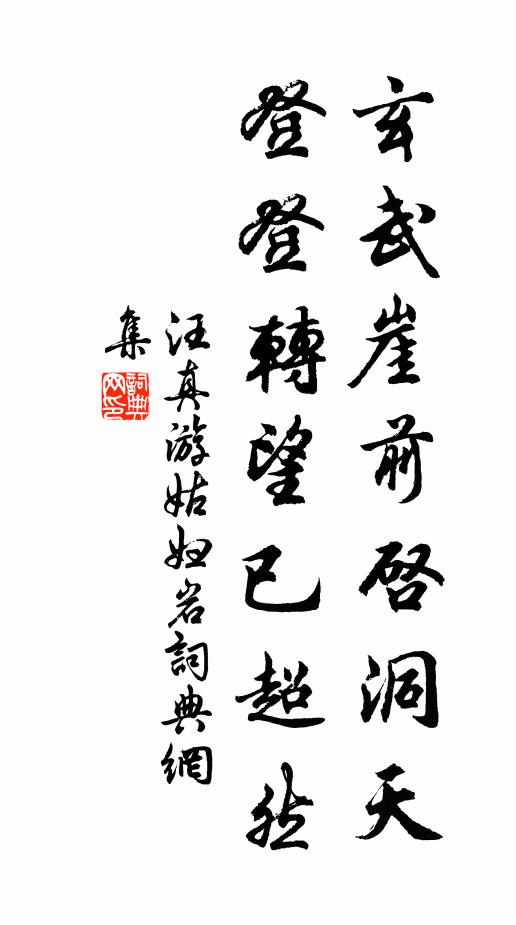 玄武崖前啓洞天
登登轉望已超然
汪真游姑妇岩詞典網
集
詞典
网印